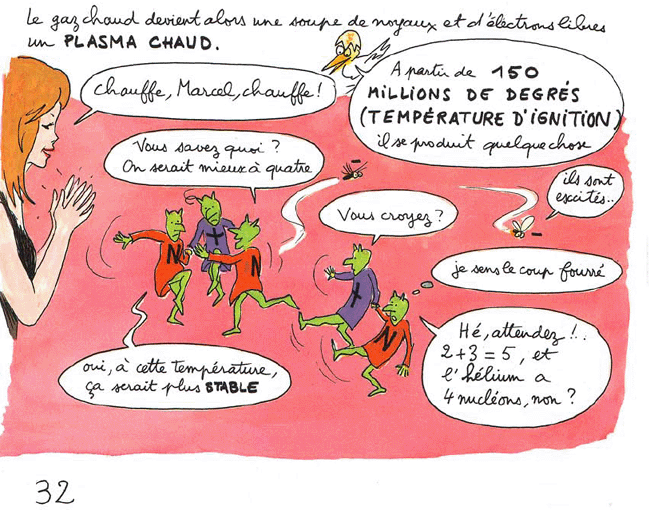 Le gaz chaud devient alors une soupe de noyaux et d'électrons libres
un PLASMA CHAUD.
Chauffe, Marcel, chauffe!
A partir de 150
MILLIONS DE DEGRÉS
(TEMPÉRATURE D'IGNITION)
il se produit quelque chose
Vous savez quoi ?
On serait mieux à quatre
ils sont
excités..
Vous croyez ?
je sens le coup fourré
N
+
N
+
N
oui, à cette température,
ça serait plus STABLE
Hé, attendez !..
2+3 = 5, et
l'hélium a
4 nucléons, non ?
32